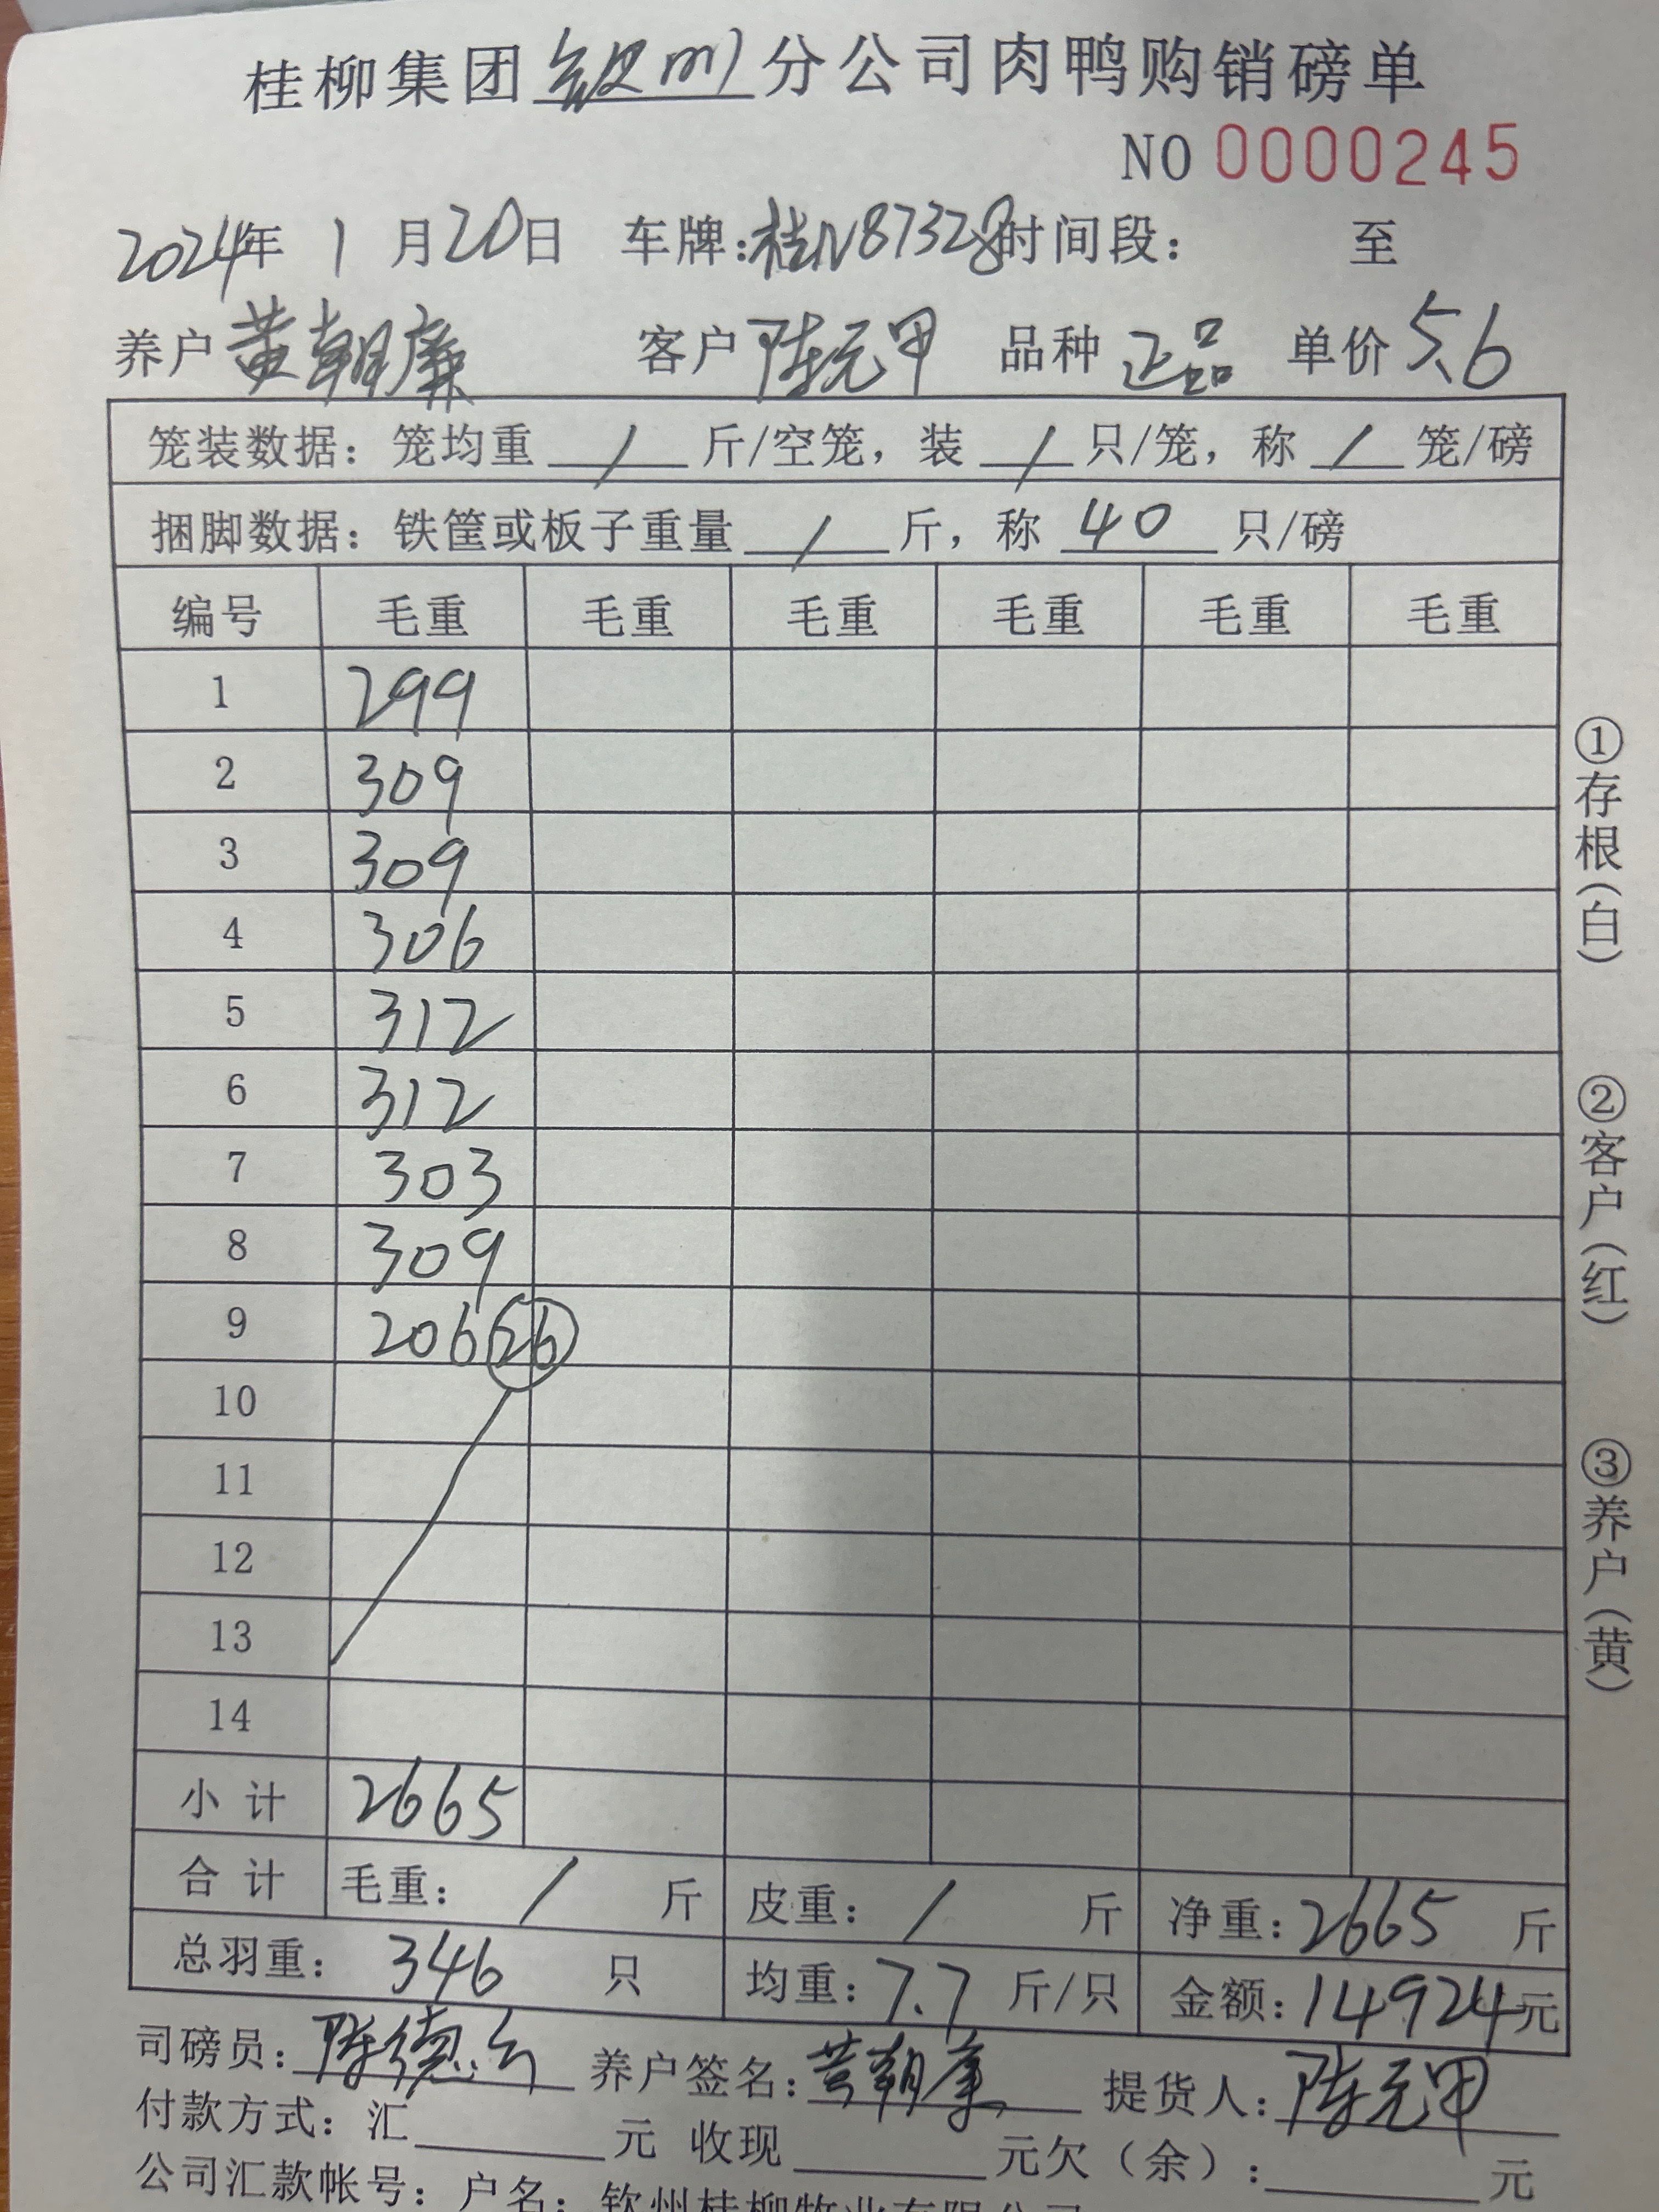 桂柳集团钦州分公司肉鸭购销磅单
NO 0000245
2024年 1 月20日 车牌:桂N87328时间段: 至
养户黄朝廉 客户陈元甲 品种正品 单价5.6
笼装数据: 笼均重 / 斤/空笼, 装 / 只/笼, 称 / 笼/磅
捆脚数据: 铁筐或板子重量 / 斤, 称 40 只/磅
编号 毛重 毛重 毛重 毛重 毛重 毛重
1 299
2 309
3 309
4 306
5 312
6 312
7 303
8 309
9 206 26
10
11
12
13
14
小计 2665
合计 毛重: / 斤 皮重: / 斤 净重:2665 斤
总羽重: 346 只 均重:7.7 斤/只 金额:14924元
司磅员: 陈德 养户签名:黄朝廉 提货人:陈元甲
付款方式: 汇 元 收现 元欠(余): 元
公司汇款帐号: 户名: 钦州桂柳牧业有限公司
①存根(白)
②客户(红)
③养户(黄)